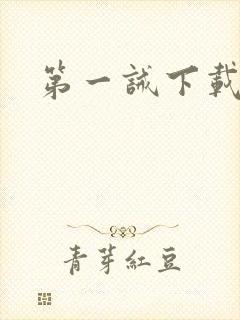 第一誡下載
青芽紅豆